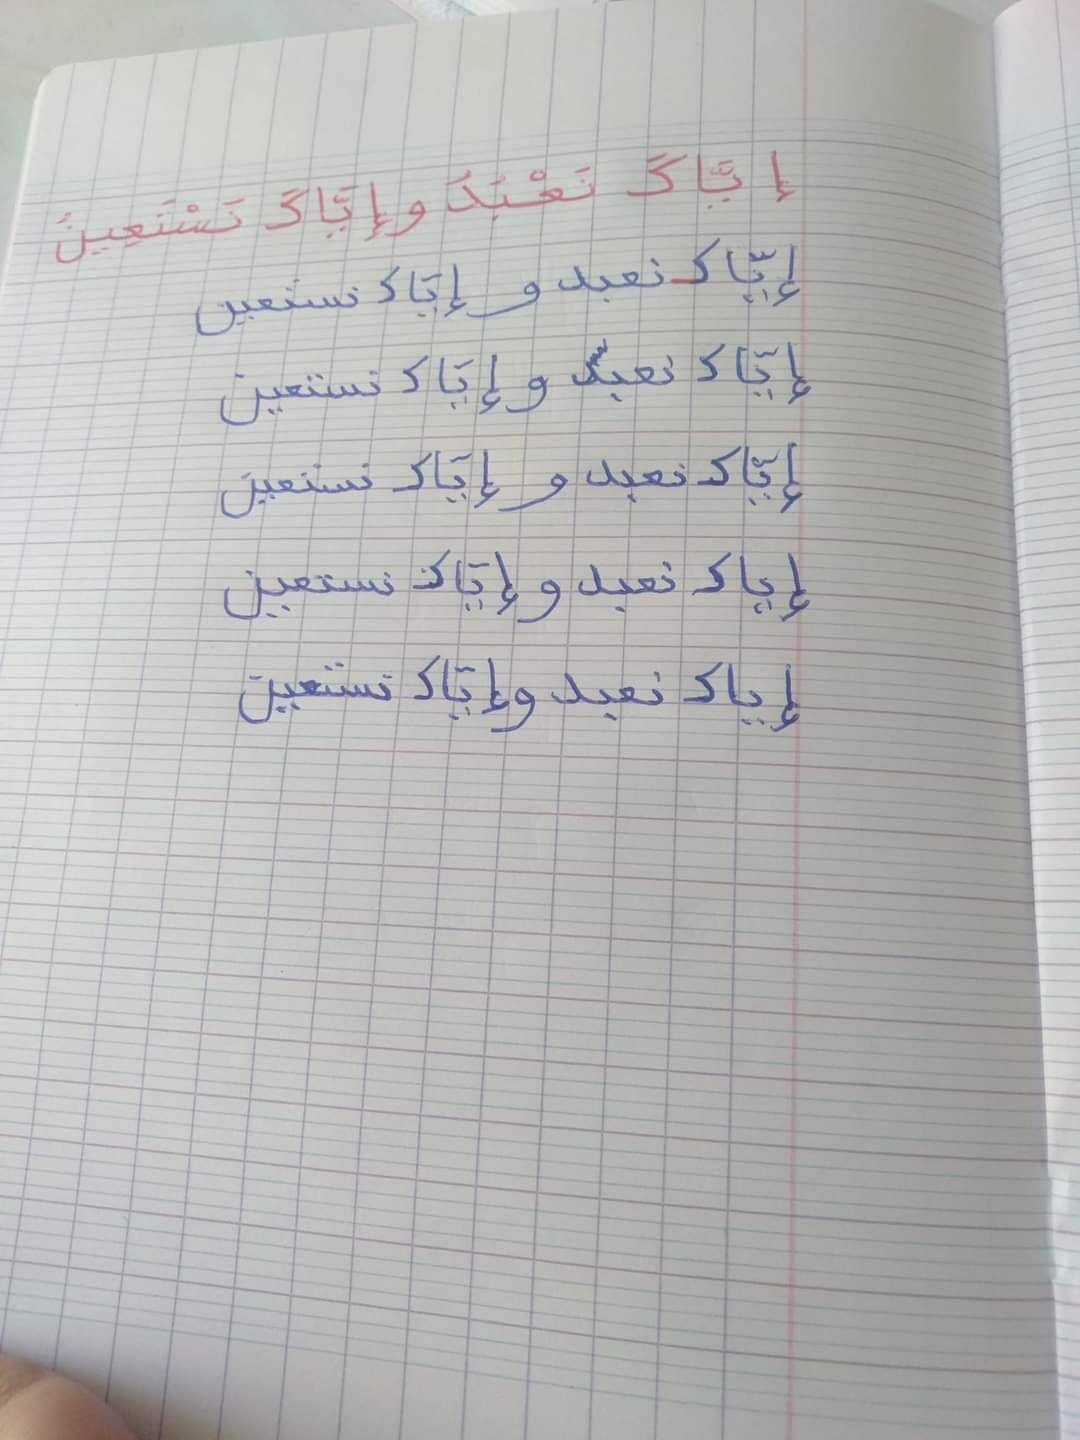 إيَّاكَ نَعْبُدُ وإيَّاكَ نَسْتَعِينُ
إيّاك نعبد و إيّاك نستعين
إيّاك نعبد و إيّاك نستعين
إيّاك نعبد و إيّاك نستعين
إياك نعبد و إيّاك نستعين
إياك نعبد وإيّاك نستعين